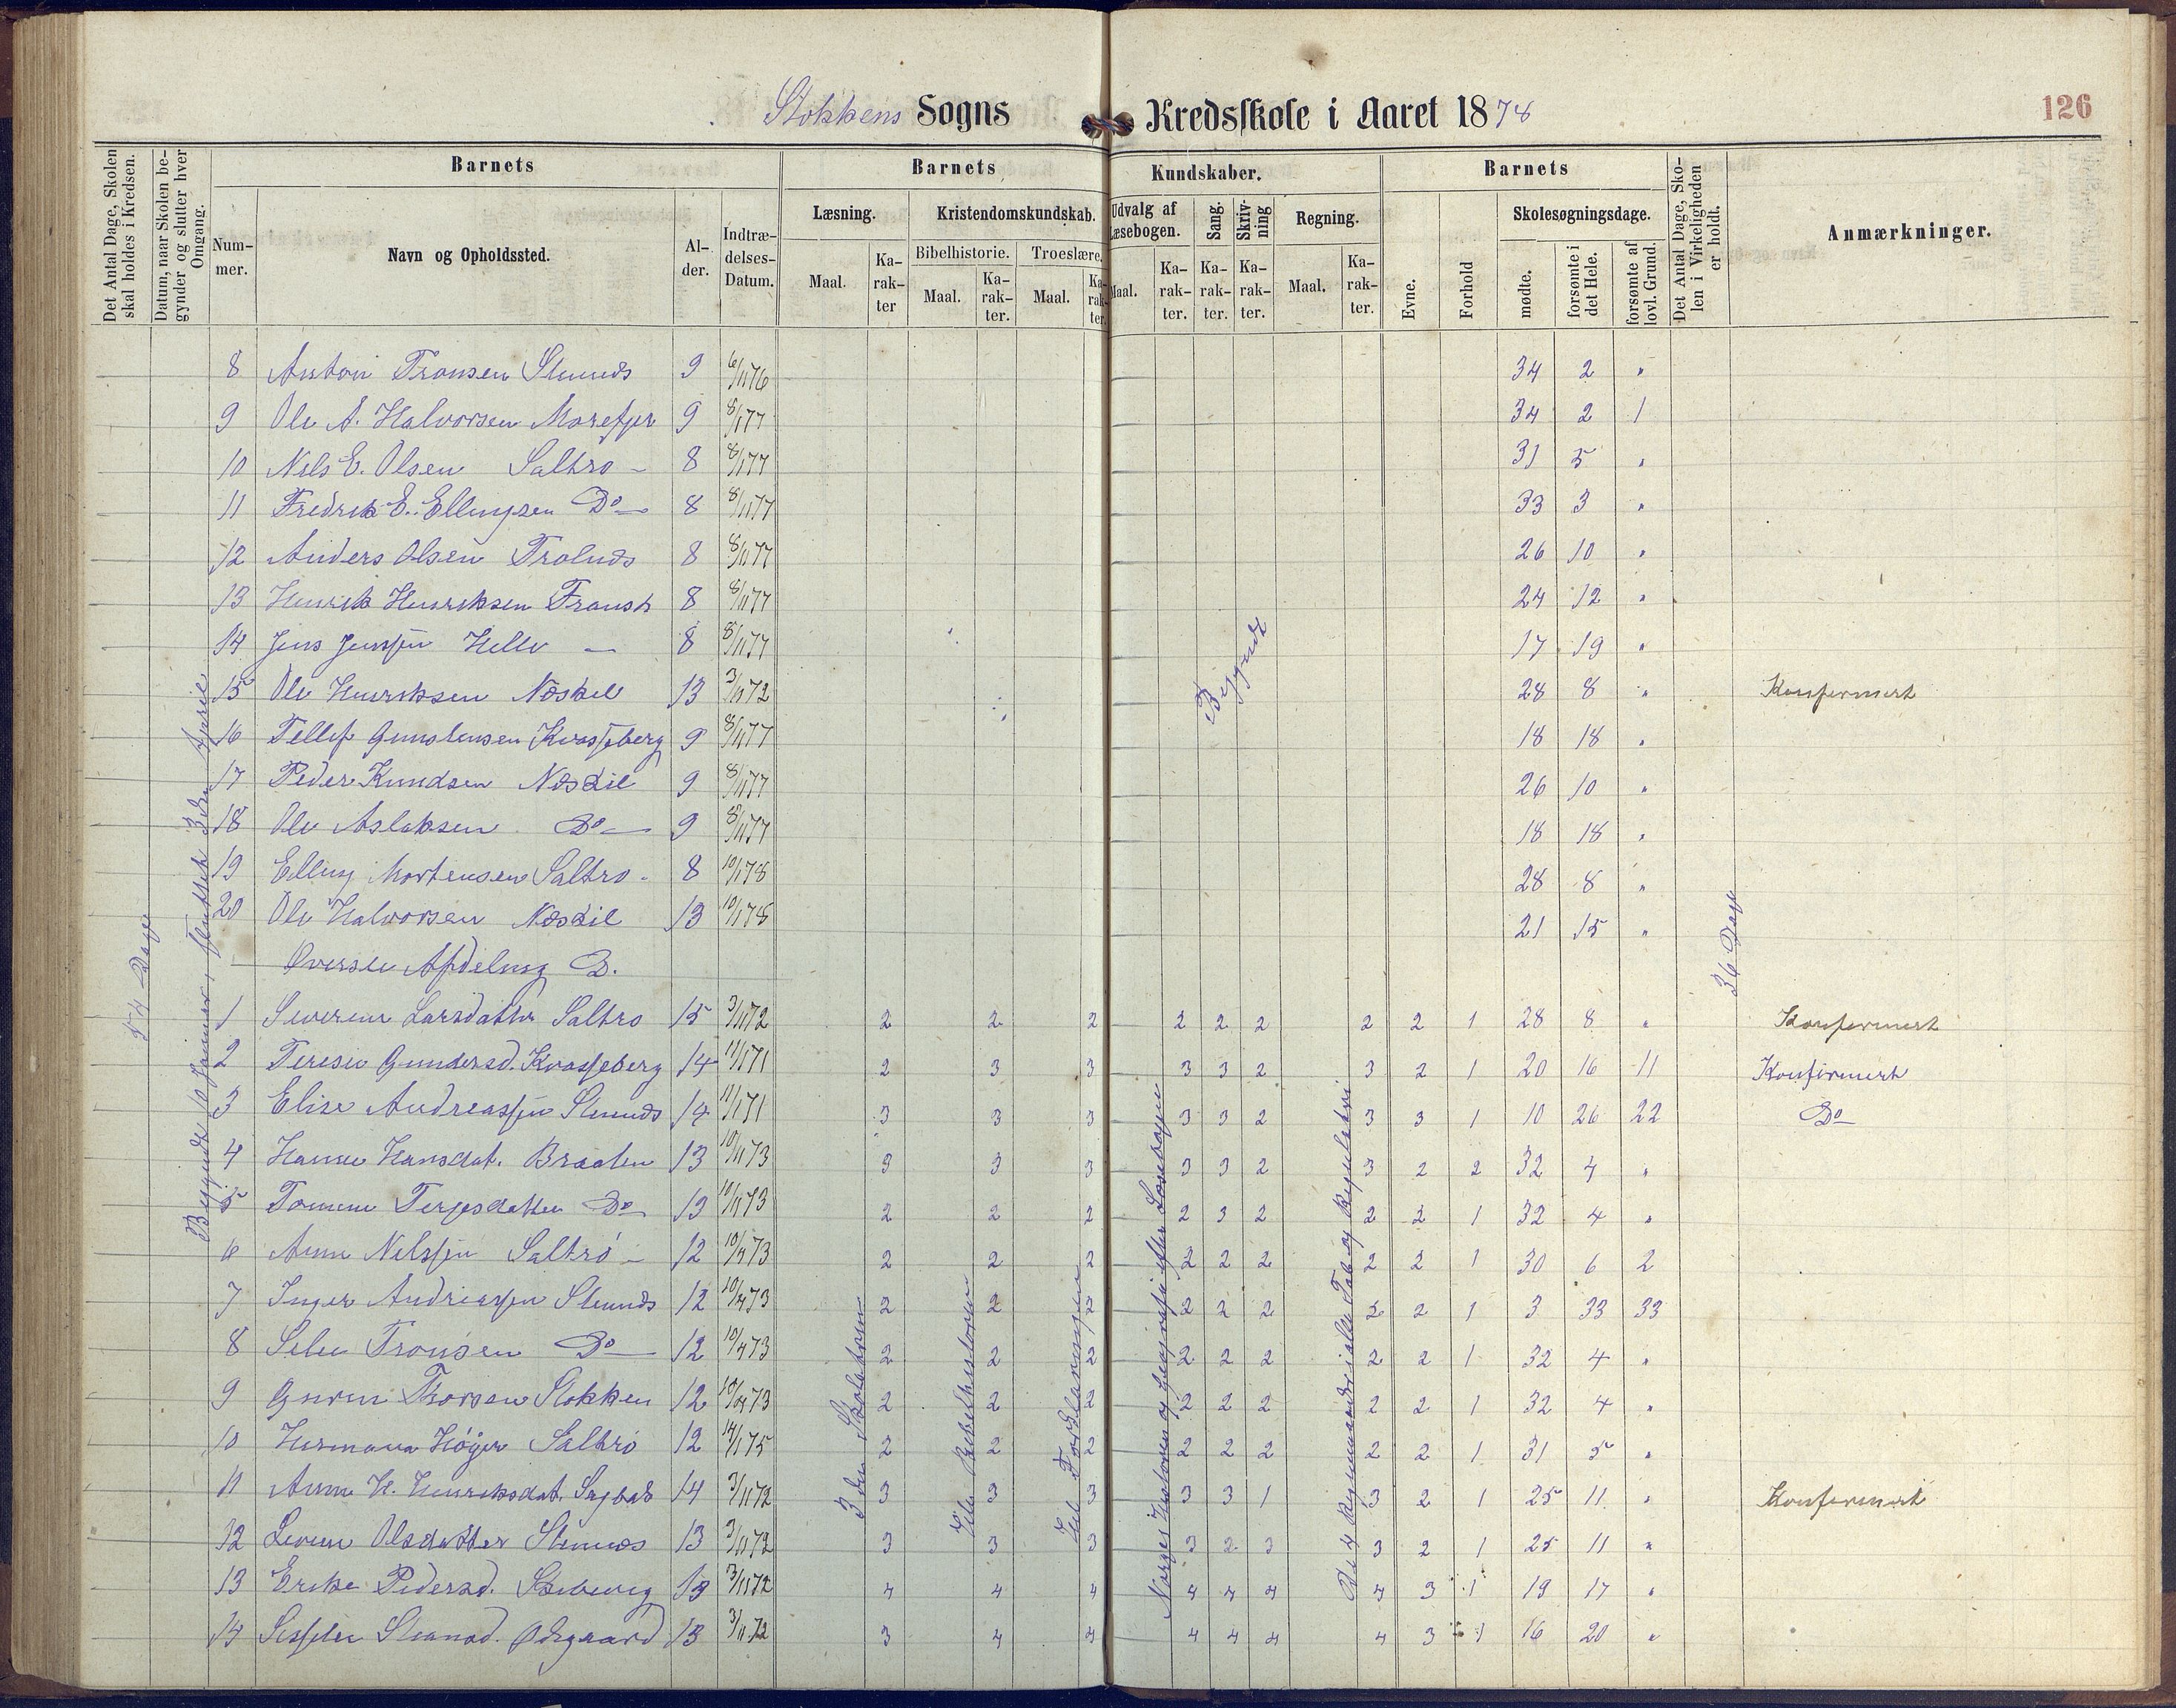 Stokkens Sogns Kredsskole i Aaret 1878
126
Det Antal Dage, Skolen skal holdes i Kredsen.
Datum, naar Skolen begynder og slutter hver Omgang.
Barnets
Nummer.
Navn og Opholdssted.
Alder.
Indtrædelses-Datum.
Barnets Kundskaber.
Læsning.
Maal.
Karakter
Kristendomskundskab.
Bibelhistorie.
Maal.
Karakter.
Troeslære.
Maal.
Karakter.
Udvalg af Læsebogen.
Maal.
Karakter.
Sang.
Karakter.
Skrivning
Karakter.
Regning.
Maal.
Karakter.
Barnets
Evne.
Forhold
Skolesøgningsdage.
mødte.
forsømte i det Hele.
forsømte af lovl. Grund.
Det Antal Dage, Skolen i Virkeligheden er holdt.
Anmærkninger.
54 Dage
36 Dage
Begyndt
8 9 6/11 76 34 2 "
9 Ole A. Halvorsen Morefjer 9 8/1 77 34 2 1
10 Nils E. Olsen Saltrø - 8 8/1 77 31 5 "
11 Fredrik E. Ellingsen Do 8 8/1 77 33 3 "
12 Anders Olsen 8 8/1 77 26 10 "
13 Henrik Henriksen 8 8/1 77 24 12 "
14 Jens Jensen Helle - 8 8/1 77 17 19 "
15 Ole Henriksen Neskil 13 3/11 72 28 8 " Konfirmert
16 Tellef Gunstensen Kvasseberg 9 8/1 77 18 18 "
17 Peder Knudsen Neskil 9 8/1 77 26 10 "
18 Ole Aslaksen Do 9 8/1 77 18 18 "
19 Elling Mortensen Saltrø - 8 10/1 78 28 8 "
20 Ole Halvorsen Neskil 13 10/1 78 21 15 "
Øverste Afdeling B.
1 Severine Larsdatter Saltrø 15 3/11 72 2 2 2 2 2 2 2 2 1 28 8 " Konfirmert
2 Terese Gundersd. Kvasseberg 14 11/1 71 2 3 3 3 3 2 3 2 1 20 16 11 Konfirmert
3 Elise Andreassen 14 11/1 71 3 3 3 3 3 2 3 3 1 10 26 22 Do
4 Hanne Hansdat. Braaten 13 10/11 73 3 3 3 3 3 2 3 2 2 32 4 "
5 Tomine Terjesdatter Do 13 10/11 73 2 2 2 2 3 2 2 2 1 32 4 "
6 Anne Nilssen Saltrø - 12 10/11 73 2 2 2 2 2 2 2 2 1 30 6 2
7 Inger Andreassen 12 10/11 73 2 2 2 2 2 2 2 2 1 3 33 33
8 Do 12 10/11 73 2 2 2 2 2 2 2 2 1 32 4 "
9 Thorsen Stokken 12 10/11 73 2 2 2 2 2 2 2 2 1 32 4 "
10 Hermana Høyer Saltrø 12 14/1 75 2 2 2 2 2 2 2 2 1 31 5 "
11 Anne H. Henriksdat. 14 3/11 72 3 3 3 3 3 1 3 2 1 25 11 " Konfirmert
12 Olsdatter 13 3/11 72 3 3 3 3 2 3 3 2 1 25 11 "
13 Pedersd. 13 3/11 72 4 4 4 4 4 4 4 3 1 19 17 "
14 Ødegaard 13 3/11 72 3 4 4 4 4 4 4 3 1 16 20 "
Begyndt 10 Januar, sluttet 3die April
3die Skoletrin
Hele Bibelhistorien
Hele Forklaringen
Norges Historie og Geografi efter Læsebogen
De 4 Regningsarter i hele Tal og Reguladetri